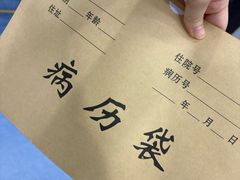 别 年龄
住址
住院号
病历号
年 月 日
病历袋